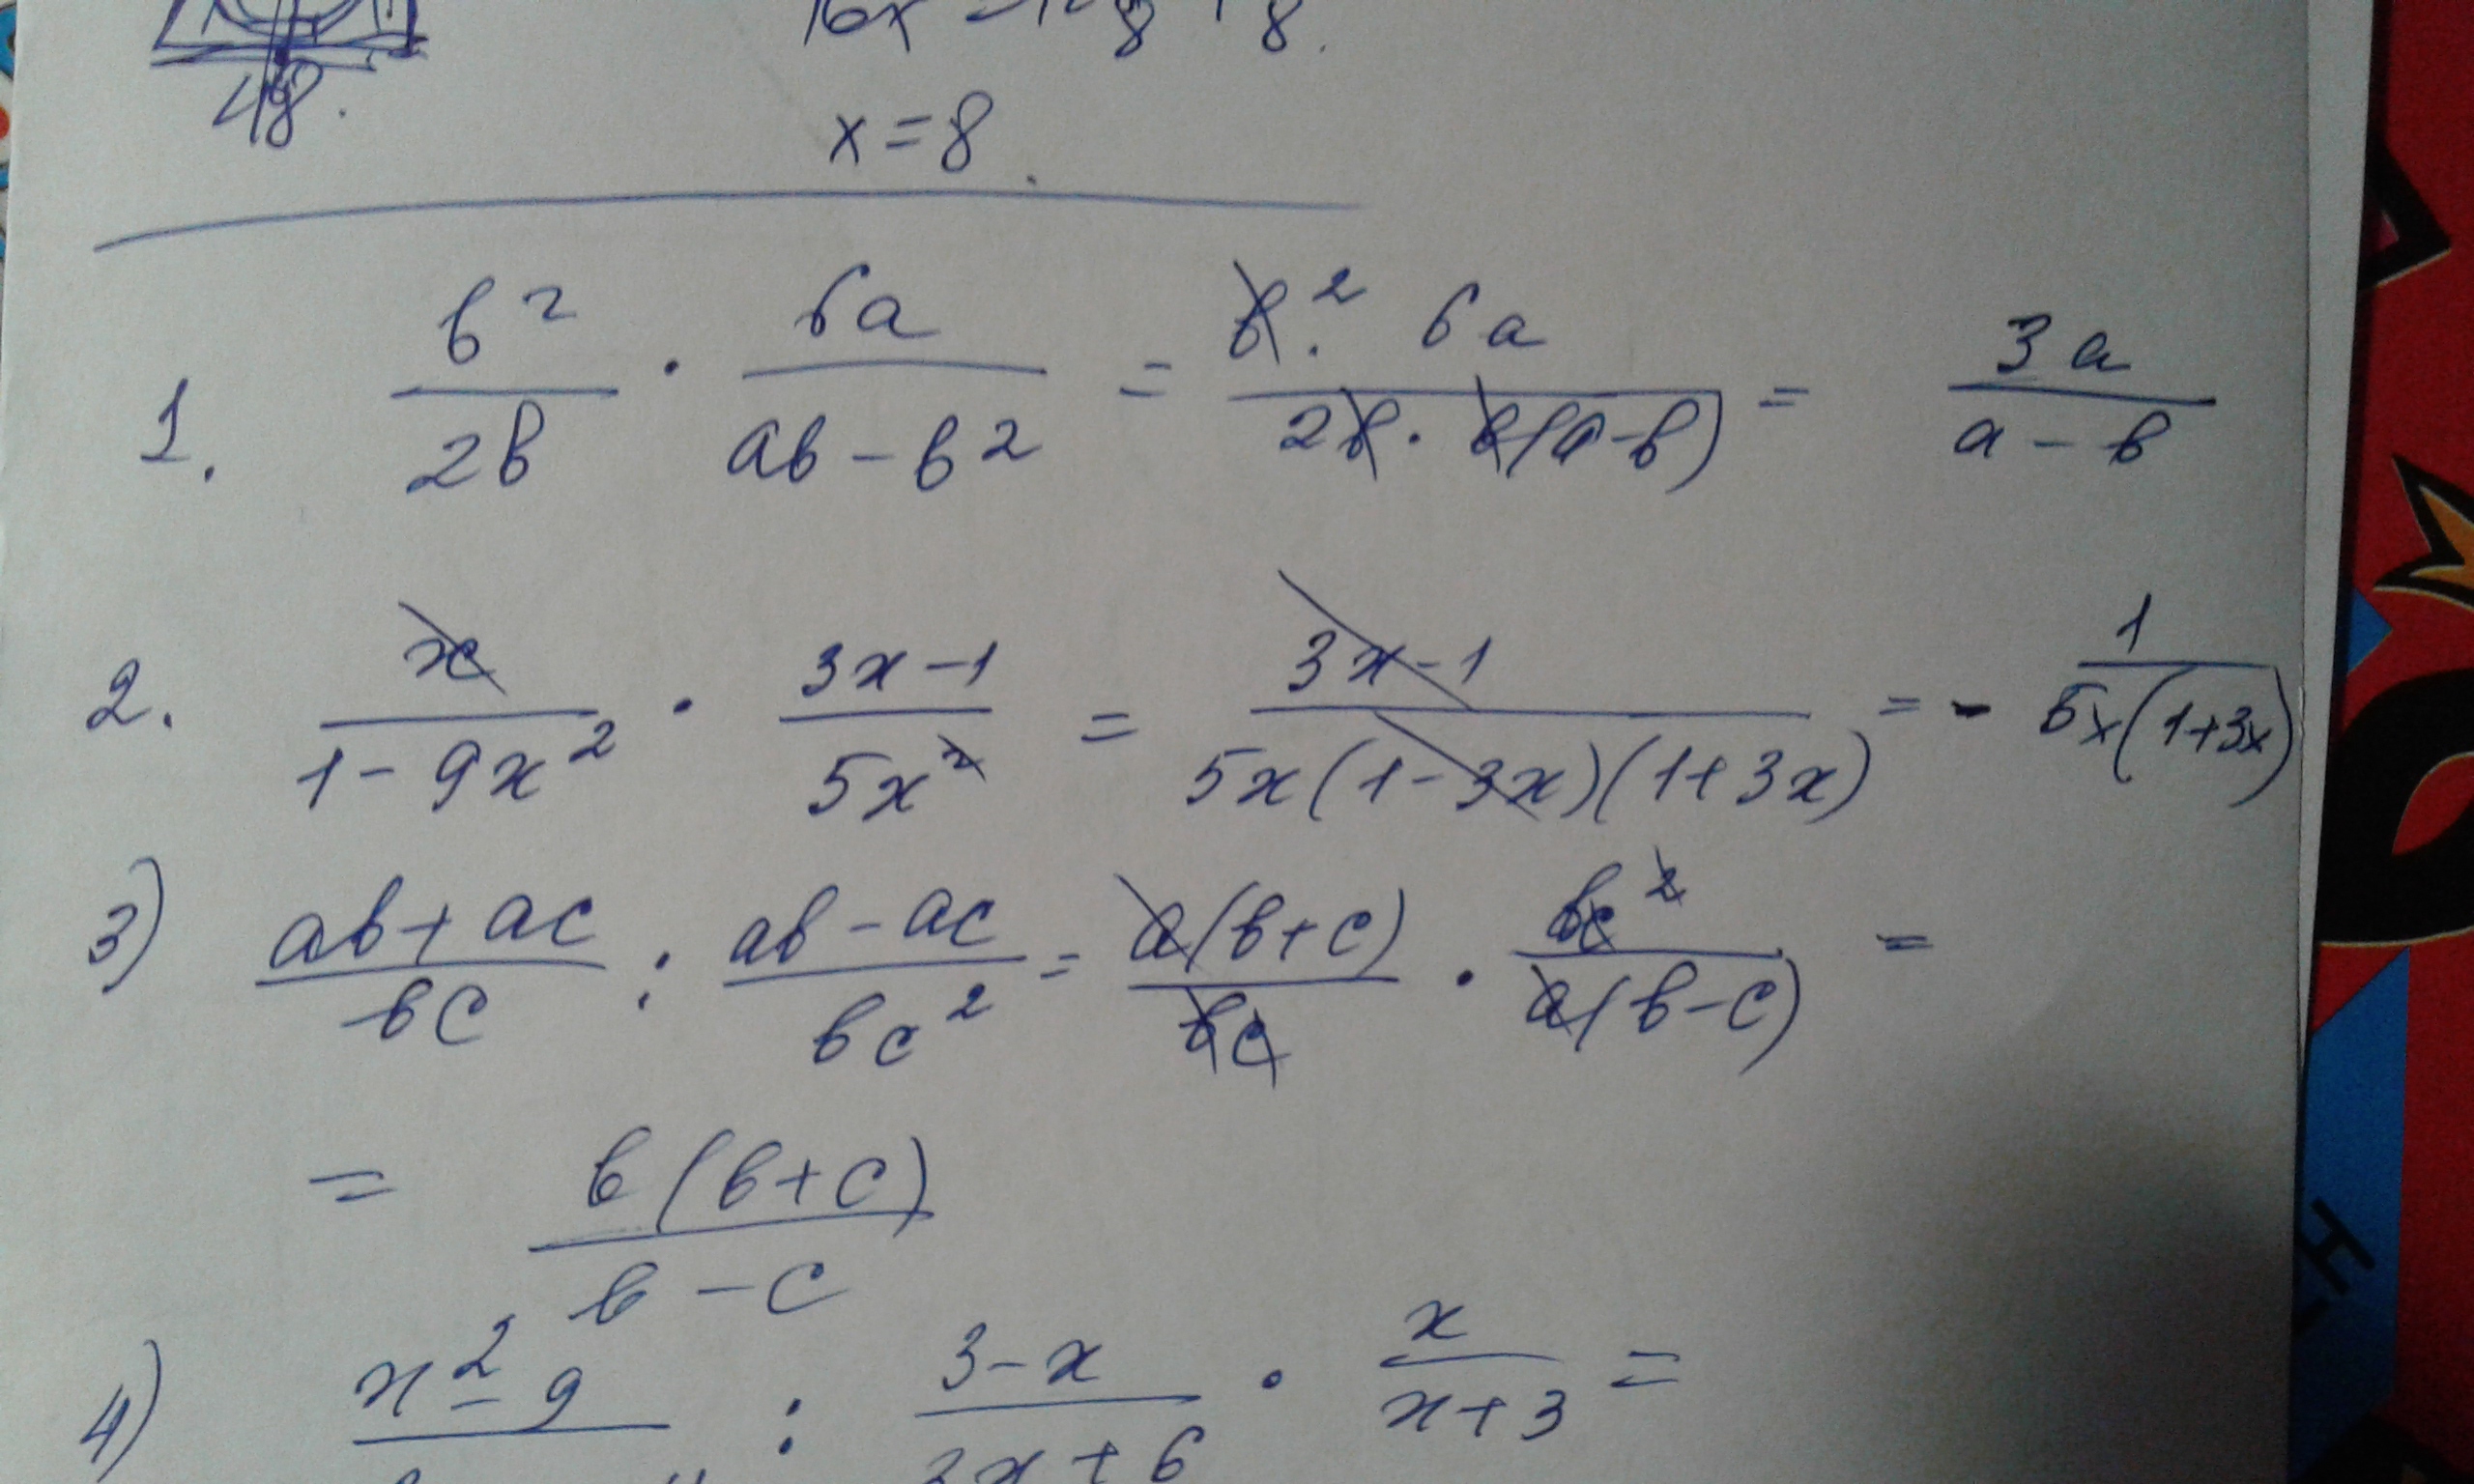 48.
x = 8.
1. b²/2b · 6a/(ab - b²) = b² · 6a/(2b · b(a - b)) = 3a/(a - b)
2. x/(1 - 9x²) · (3x - 1)/5x² = (3x - 1)/(5x(1 - 3x)(1 + 3x)) = - 1/(5x(1 + 3x))
3) (ab + ac)/bc : (ab - ac)/bc² = a(b + c)/bc · bc²/(a(b - c)) =
= b(b + c)/(b - c)
4) x² - 9 : (3 - x)/(2x + 6) · x/(x + 3) =